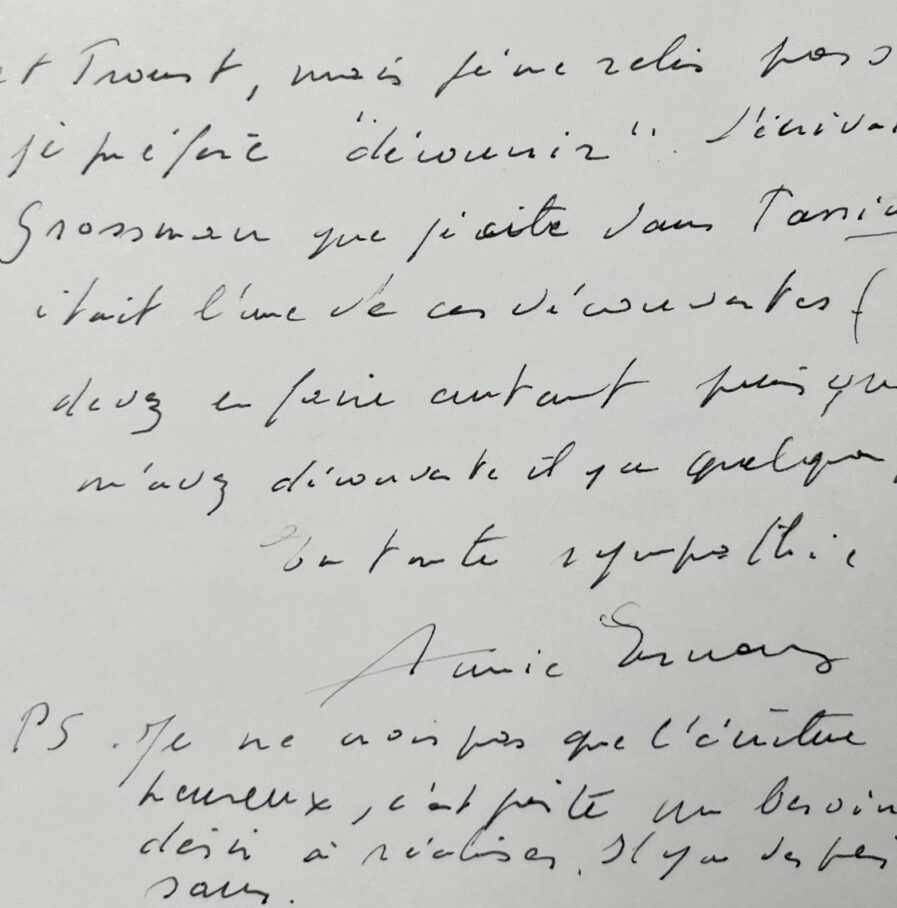 et Proust, mais je ne relis pas
je préfère "découvrir". L'écrivai
Grossman que je cite dans Passio
était l'une de ces découvertes (
devez en faire autant puisqu
m'avez découverte il y a quelque
En toute sympathie
Annie Ernaux
PS. Je ne crois pas que l'écriture
heureux, c'est un besoin
désir à réaliser. Il y a des
sans.